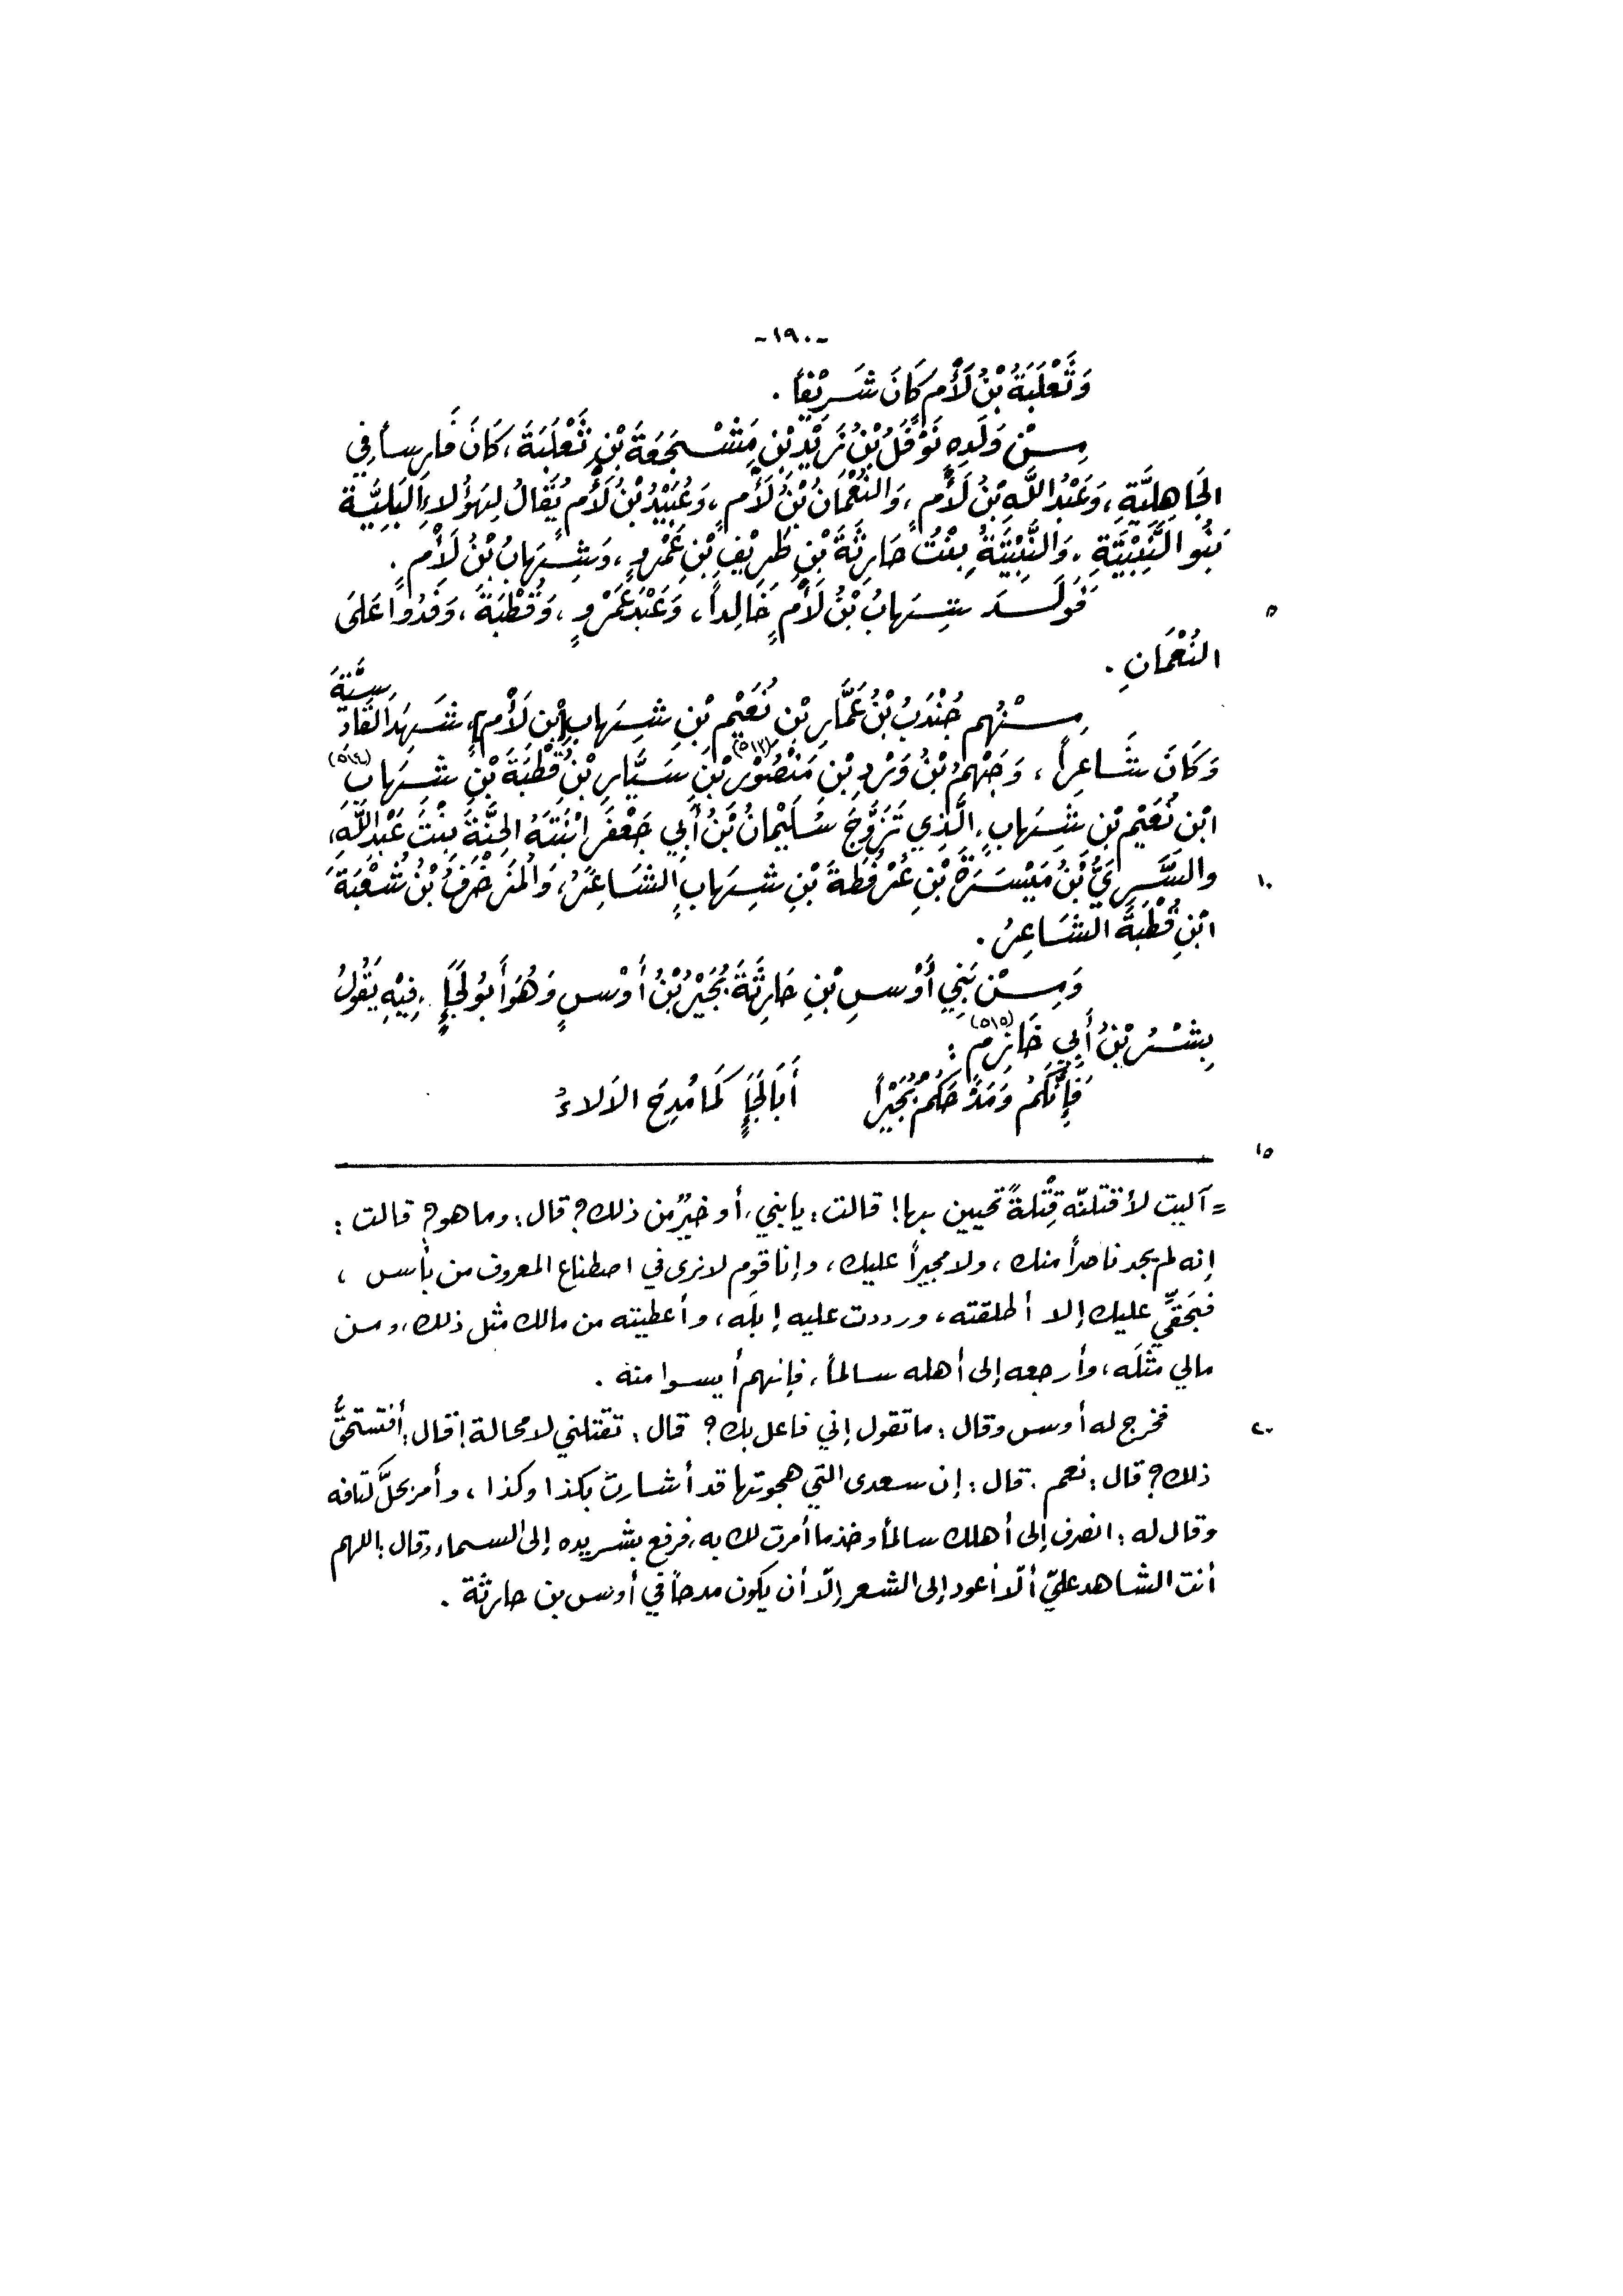 -١٩٠-
وَثَعْلَبَةُ بْنُ لَأْمٍ كَانَ شَرِيْفاً .
مِـنْ وَلَدِهِ نَوْفَلُ بْنُ زَيْدِ بْنِ مَشْجَعَةَ بْنِ ثَعْلَبَةَ، كَانَ فَارِساً فِي
الجَاهِلِيَّةِ، وَعَبْدُ اللَّهِ بْنُ لَأْمٍ، وَالنُّعْمَانُ بْنُ لَأْمٍ، وَعُبَيْدُ بْنُ لَأْمٍ يُقَالُ لِهَؤُلاءِ البَلِيَّة
بَنُو الثَّيِّبَةِ، وَالثَّيِّبَةُ بِنْتُ حَارِثَةَ بْنِ طَرِيْفِ بْنِ عَمْرٍو، وَشِهَابُ بْنُ لَأْمٍ .
٥
فَوَلَـدَ شِهَابُ بْنُ لَأْمٍ خَالِداً، وَعَبْدَ عَمْرٍو، وَقُطْبَةَ، وَفَدُوا عَلَى
النُّعْمَانِ .
مِـنْهُم جُنْدَبُ بْنُ عَمَّارِ بْنِ نُعَيْمِ بْنِ شِهَابِ [بْنِ لَأْمٍ]، شَهِدَ القَادِسِيَّةَ
وَكَانَ شَاعِراً، وَجَهْمُ بْنُ وَرْدِ بْنِ مَنْصُوْرِ (٥١٣) بْنِ سَيَّارِ بْنِ قُطْبَةَ بْنِ شِهَابِ (٥١٤)
ابْنِ نُعَيْمِ بْنِ شِهَابٍ، الَّذِي تَزَوَّجَ سُلَيْمَانُ بْنُ أَبِي جَعْفَرَ ابْنَتَهُ الجَنَّةَ بِنْتَ عَبْدِ اللَّهِ،
والسَّرِيُّ بْنُ مَيْسَرَةَ بْنِ عُرْفُطَةَ بْنِ شِهَابٍ الشَّاعِرُ، وَالمُزَخْرَفُ بْنُ شُعْبَةَ
١٠
ابْنِ قُطْبَةَ الشَّاعِرُ .
وَمِـنْ بَنِي أَوْسِ بْنِ حَارِثَةَ بُجَيْرُ بْنُ أَوْسٍ وَهُوَ أَبُو لَجَإٍ، فِيْهِ يَقُولُ
بِشْرُ بْنُ أَبِي خَازِمٍ (٥١٥) :
فَإِنَّكُمْ وَمَدْحَكُمْ بُجَيْراً أَبَا لَجَإٍ كَمَا مُدِحَ الأَلاءُ
١٥
= آليت لأقتلنّه قِتْلةً تحيين بها! قالت: يا بني، أو خيرٌ من ذلك؟ قال: وما هو؟ قالت:
إنه لم يجد ناصراً منك، ولا مجيراً عليك، وإنا قوم لا نرى في اصطناع المعروف من بأس،
فبحَقّي عليك إلا أطلقته، ورددت عليه إبله، وأعطيته من مالك مثل ذلك، ومـن
مالي مثلَه، وأرجعه إلى أهله سالماً، فإنهم أيسوا منه .
فخرج له أوس وقال: ما تقول إني فاعل بك؟ قال: تقتلني لا محالة! قال: أفتستحقُّ
٢٠
ذلك؟ قال: نعم. قال: إن سعدى التي هجوتها قد أشارت بكذا وكذا، وأمر بحلّ كتافه
وقال له: انصرف إلى أهلك سالماً وخذ ما أمرت لك به، فرفع بشر يده إلى السماء وقال: اللهم
أنت الشاهد عليّ ألّا أعود إلى الشعر إلّا أن يكون مدحاً في أوس بن حارثة .